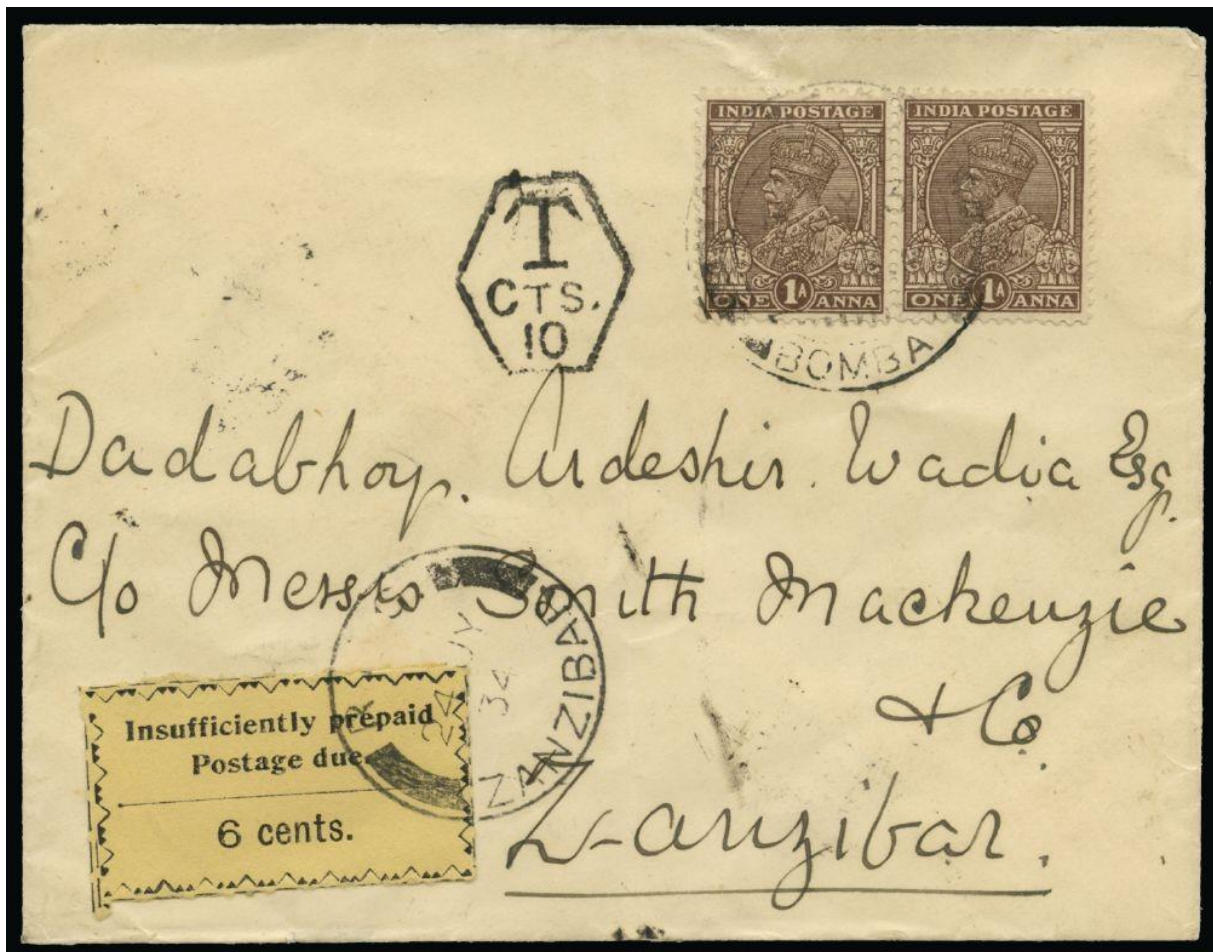 INDIA POSTAGE INDIA POSTAGE
ONE 1A ANNA ONE 1A ANNA
BOMBA
T
CTS.
10
Dadabhoy. Ardeshir. Wadia Esq.
C/o Messrs Smith Mackenzie
& Co
Zanzibar.
ZANZIBAR
24 JY
34
Insufficiently prepaid
Postage due.
6 cents.